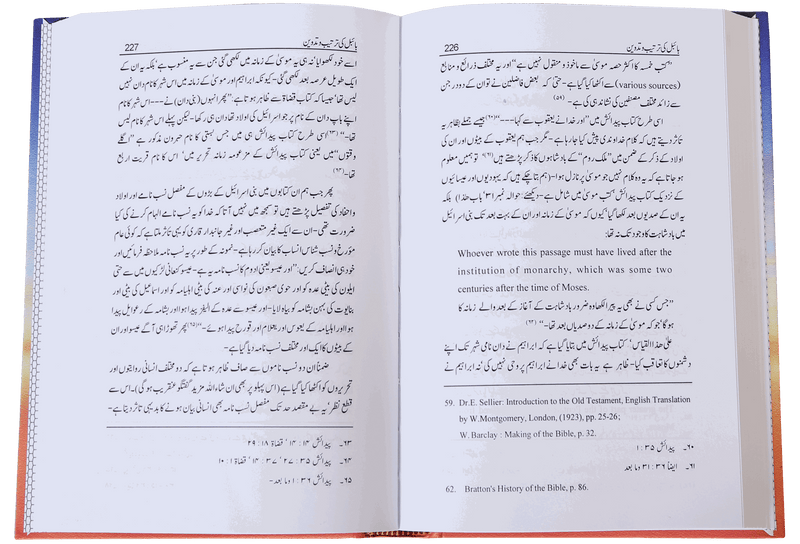 226 بائبل کی ترتیب و تدوین
”کتب خمسہ کا اکثر حصہ موسیٰ سے ماخوذ و منقول نہیں ہے“ اور یہ مختلف ذرائع و منابع
(various sources) سے اکٹھا کیا گیا ہے۔ حتیٰ کہ بعض فاضلین نے توان کے دو درجن
سے زائد مختلف مصنفین کی نشاندہی کی ہے۔ (۵۹)
اسی طرح کتاب پیدائش میں ”اور خدا نے یعقوب سے کہا---“(۶۰) جیسے جملے بظاہر یہ
تأثر دیتے ہیں کہ کلام خداوندی پیش کیا جا رہا ہے۔ مگر جب ہم یعقوب کے بیٹوں اور ان کی
اولاد کے ذکر کے ضمن میں ”ملک روم“ کے بادشاہوں کا ذکر پڑھتے ہیں(۶۱) تو ہمیں معلوم
ہو جاتا ہے کہ یہ وہ کلام نہیں جو موسیٰ پر نازل ہوا۔ (ہم بتا چکے ہیں کہ یہودیوں اور عیسائیوں
کے نزدیک کتاب پیدائش ’کتب موسیٰ میں شامل ہے۔ دیکھئے: حوالہ نمبر ۳۱ ’باب ھذا) بلکہ
یہ ان کے صدیوں بعد لکھا گیا‘ کیوں کہ موسیٰ کے زمانہ اور ان کے بہت بعد تک بنی اسرائیل
میں بادشاہت کا وجود تک نہ تھا:
Whoever wrote this passage must have lived after the
institution of monarchy, which was some two
centuries after the time of Moses.
”جس کسی نے بھی یہ پیرا لکھا وہ ضرور بادشاہت کے آغاز کے بعد والے زمانہ کا
ہو گا‘ جو کہ موسیٰ کے زمانہ کے دو صدیاں بعد تھا۔“ (۶۲)
علیٰ ھذا القیاس‘ کتاب پیدائش میں بتایا گیا ہے کہ ابراہیم نے دان نامی شہر تک اپنے
دشمنوں کا تعاقب کیا۔ ظاہر ہے یہ بات بھی خدا نے ابراہیم پر وحی نہیں کی‘ نہ ابراہیم نے
59. Dr.E. Sellier: Introduction to the Old Testament, English Translation
by W.Montgomery, London, (1923), pp. 25-26;
W. Barclay : Making of the Bible, p. 32.
۶۰۔ پیدائش ۳۵ : ۱
۶۱۔ ایضاً ۳۶ : ۳۱ و ما بعد
62. Bratton's History of the Bible, p. 86.
بائبل کی ترتیب و تدوین 227
اسے خود لکھوایا‘ نہ ہی یہ موسیٰ کے زمانہ میں لکھی گئی جن سے یہ منسوب ہے‘ بلکہ یہ ان کے
ایک طویل عرصہ بعد لکھی گئی۔ کیونکہ ابراہیم اور موسیٰ کے زمانہ میں اس شہر کا نام
لیس تھا‘ جیسا کہ کتاب قضاۃ سے ظاہر ہوتا ہے: ”پھر انہوں (بنی دان) نے۔۔۔۔ اس شہر کا نام
اپنے باپ دان کے نام پر جو اسرائیل کی اولاد تھا دان ہی رکھا۔ لیکن پہلے اس شہر کا نام لیس
تھا۔“(۶۳) اسی طرح کتاب پیدائش ہی میں جس بستی کا نام حبرون مذکور ہے ”اگلے
وقتوں“ میں یعنی کتاب پیدائش کے مزعومہ زمانہ تحریر میں‘ اس کا نام قریت اربع
تھا۔ (۶۴)
پھر جب ہم ان کتابوں میں بنی اسرائیل کے بڑوں کے مفصل نسب نامے اور اولاد
و احفاد کی تفصیل پڑھتے ہیں تو سمجھ میں نہیں آتا کہ خدا کو یہ نسب نامے الہام کرنے کی کیا
ضرورت تھی۔ ان سے ایک غیر متعصب اور غیر جانبدار قاری کو یہی تأثر ملتا ہے کہ کوئی عام
مؤرخ و نسب شناس انساب کا بیان کر رہا ہے۔ نمونہ کے طور پر یہ نسب نامہ ملاحظہ فرمائیں اور
خود ہی انصاف کریں: ”اور عیسو یعنی ادوم کا نسب نامہ یہ ہے۔ عیسو کنعانی لڑکیوں میں سے حتی
ایلون کی بیٹی عدہ کو اور حوی صبعون کی نواسی اور عنہ کی بیٹی اہلیبامہ کو اور اسماعیل کی بیٹی اور
بنایوت کی بہن بشامہ کو بیاہ لایا۔ اور عیسو سے عدہ کے الیفز پیدا ہوا اور بشامہ کے رعوایل پیدا
ہوا اور اہلیبامہ کے یعوس اور یعلام اور قورح پیدا ہوئے۔“(۶۵) پھر تھوڑا ہی آگے عیسو اور ان
کے بیٹوں کا ایک اور مختلف نسب نامہ دیا گیا ہے۔
ضمناً ان دو نسب ناموں سے صاف ظاہر ہوتا ہے کہ دو مختلف انسانی روایتوں اور
تحریروں کو اکٹھا کیا گیا ہے (اس پہلو پر بھی ان شاء اللہ مزید گفتگو عنقریب ہو گی)۔ اس سے
قطع نظر‘ یہ بے مقصد حد تک مفصل نسب نامہ بھی انسانی بیان ہونے کا بدیہی تأثر دیتا ہے۔
۶۳۔ پیدائش ۱۴ : ۱۴‘ قضاۃ ۱۸ : ۲۹
۶۴۔ پیدائش ۳۵ : ۲۷‘ ۳۷ : ۱۴‘ قضاۃ ۱ : ۱۰
۶۵۔ پیدائش ۳۶ : ۱ و ما بعد۔